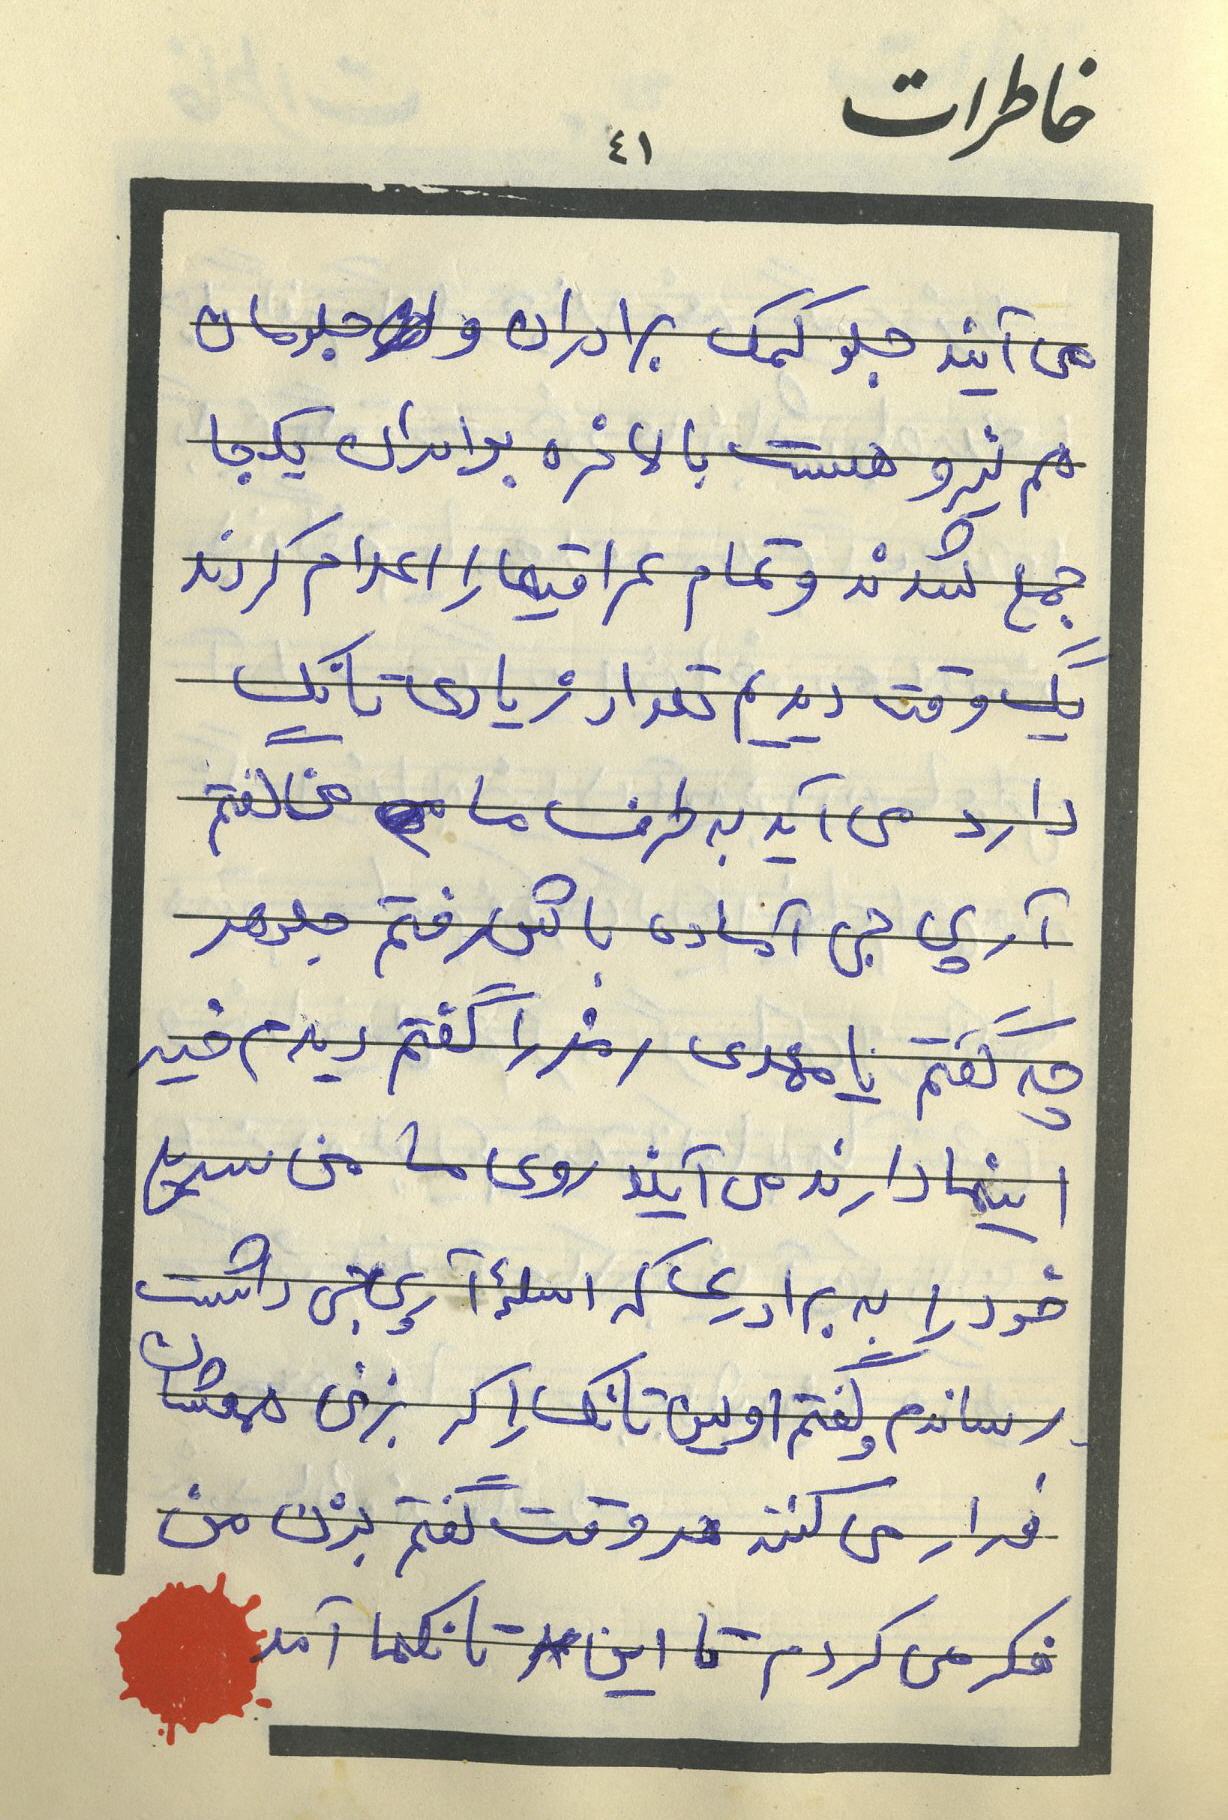 خاطرات
٤١
می آیند جلو کمک برادران و جلومان
هم نیرو هست بالاخره برادران یکجا
جمع شدند و تمام عراقیها را اعدام کردند
یک وقت دیدیم تعداد زیادی تانک
دارد می آید به طرف ما من گفتم
آر پی جی آماده باش رفتم جلو هر
چه گفتم یا مهدی رمز را گفتم دیدم خیر
اینها دارند می آیند روی ما من سریع
خود را به برادری که اسلحهٔ آرپی جی داشت
رساندم و گفتم اولین تانک را که بزنی همشان
فرار می کنند هر وقت گفتم بزن من
فکر می کردم تا این تانکها آمد